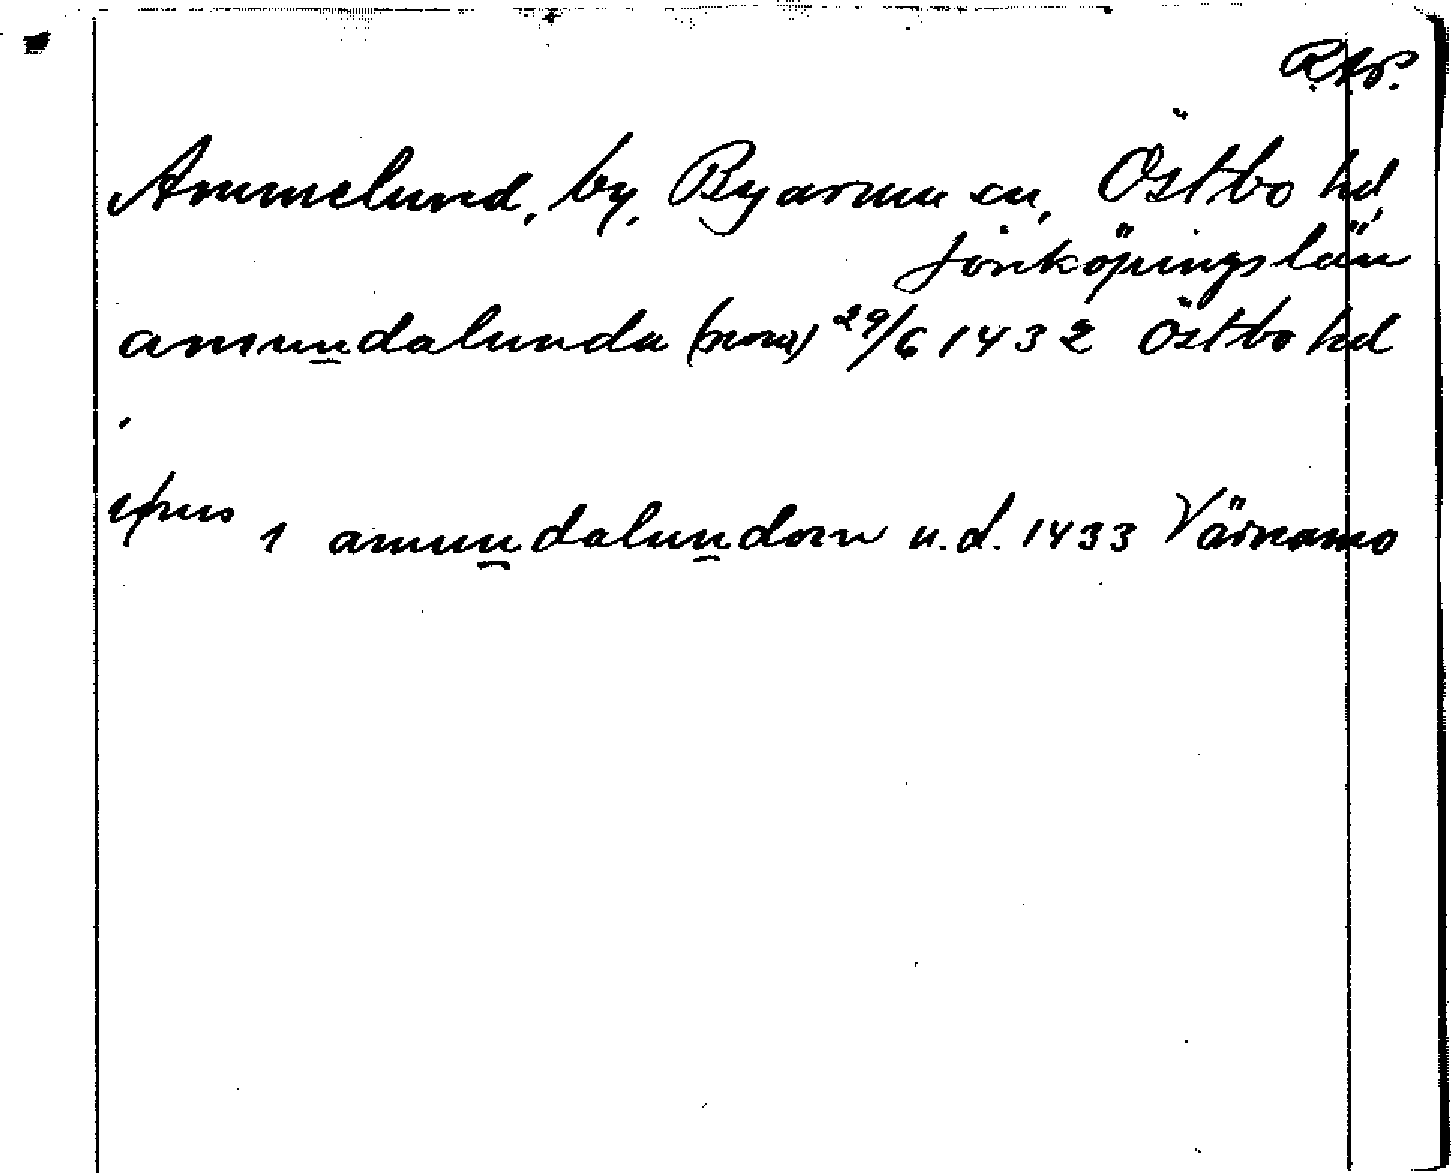 RAp.
Ammelund, by, Byarums sn, Östbo hd,
Jönköpings län
amundalunda (nom) 29/6 1432 Östbo hd
1 amundalundom u.d. 1433 Värnamo